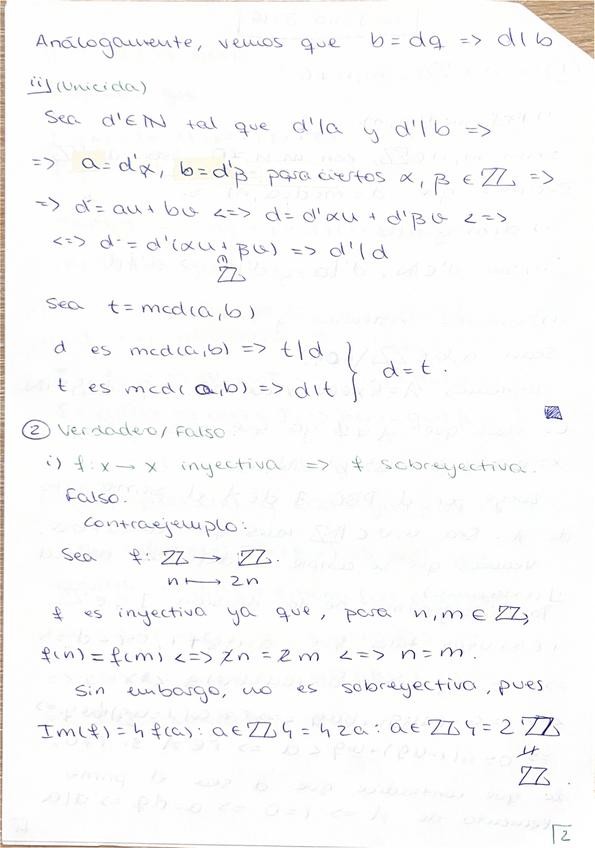 Análogamente, vemos que b = dq => d | b
ii) (Unicida)
Sea d' ∈ ℕ tal que d'/a y d'/b =>
=> a = d'α, b = d'β para ciertos α, β ∈ ℤ =>
=> d = au + bv <=> d = d'αu + d'βv <=>
<=> d = d'(αu + βv) => d' | d
∩
ℤ
Sea t = mcd(a, b)
d es mcd(a, b) => t | d
t es mcd(a, b) => d | t } d = t.
② Verdadero/Falso.
i) f: x → x inyectiva => f sobreyectiva.
Falso.
Contraejemplo:
Sea f: ℤ → ℤ.
n ↦ 2n
f es inyectiva ya que, para n, m ∈ ℤ,
f(n) = f(m) <=> 2n = 2m <=> n = m.
Sin embargo, no es sobreyectiva, pues
Im(f) = {f(a) : a ∈ ℤ} = {2a : a ∈ ℤ} = 2ℤ
≠
ℤ.
2